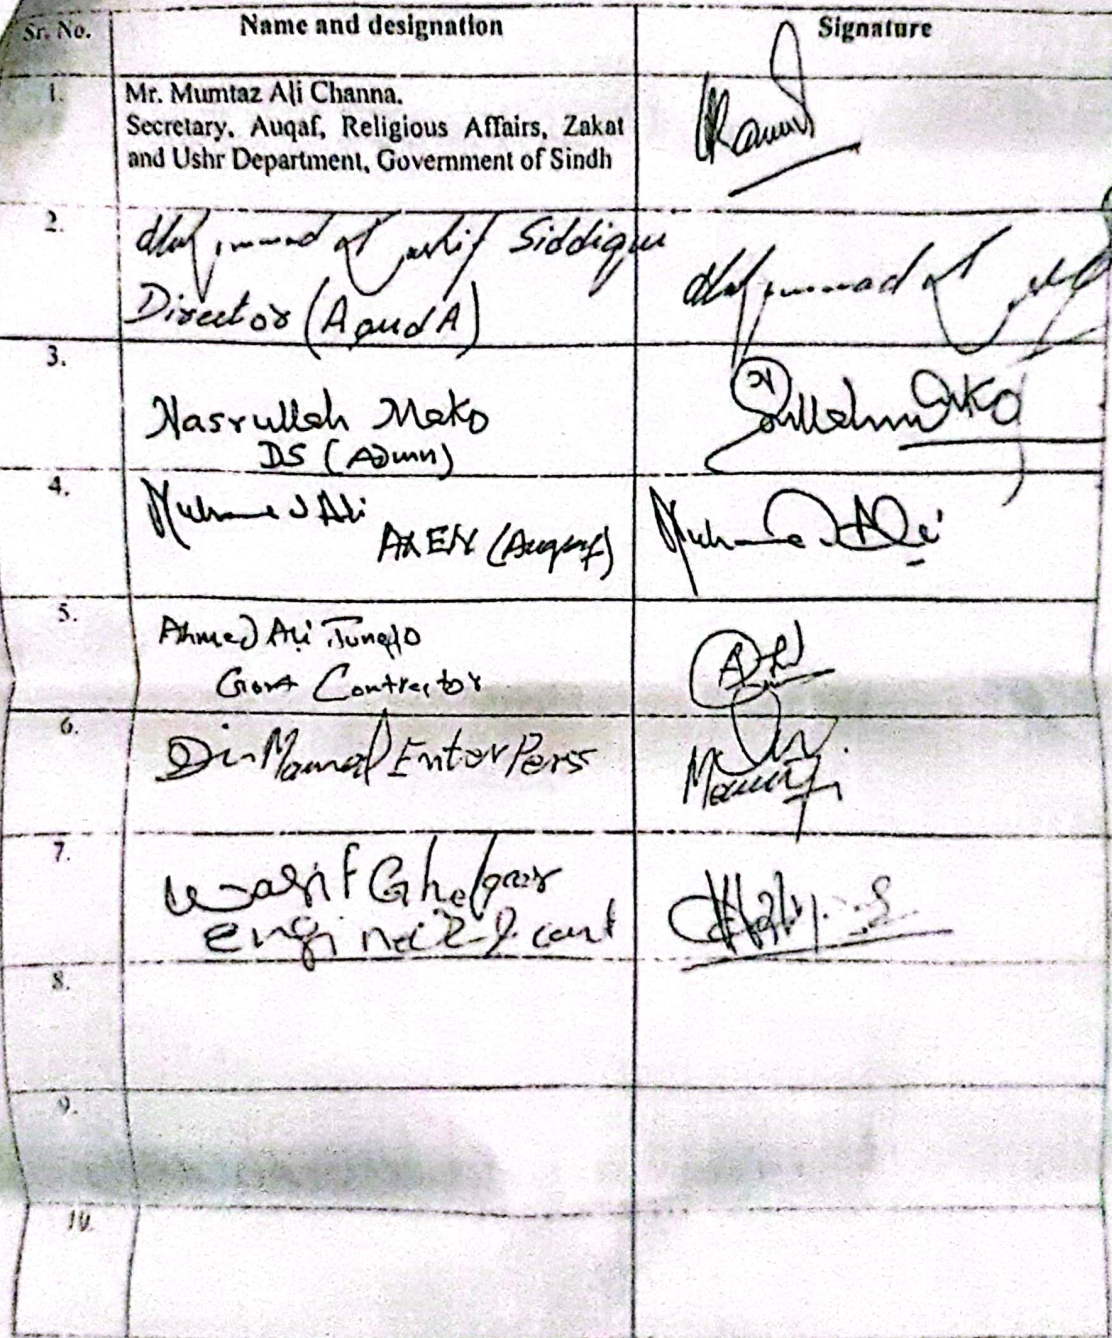 Sr. No. Name and designation Signature
1. Mr. Mumtaz Ali Channa.
Secretary, Auqaf, Religious Affairs, Zakat
and Ushr Department, Government of Sindh
2. Muhammad Kashif Siddiqui Muhammad Kashif
Director (A and A)
3.
Nasrullah Mako
DS (Admn)
4. Muhammad Ali Muhammad Ali
AXEN (Auqaf)
5.
Ahmed Ali Junejo
Govt Contractor
6.
Din Mamad EnterPers
7.
wasif
engineer
8.
9.
10.